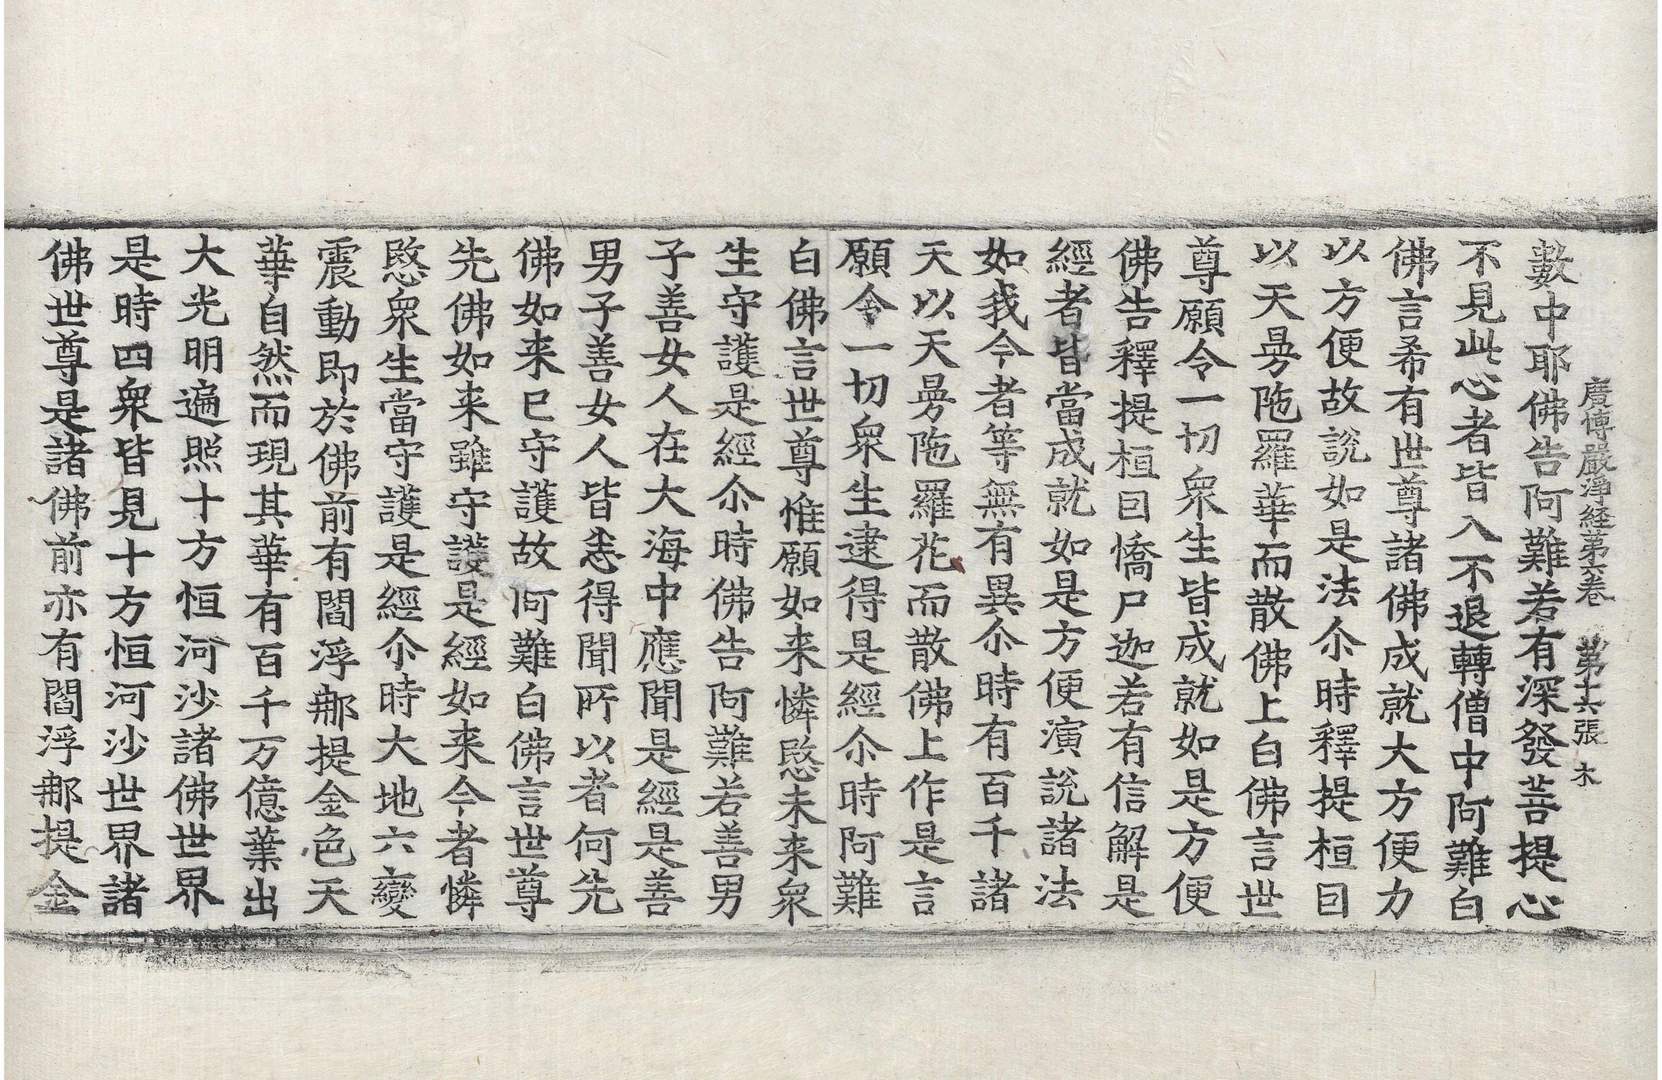 廣博嚴淨経第六卷　第十六張　木
數中耶佛告阿難若有深發菩提心
不見此心者皆入不退轉僧中阿難白
佛言希有世尊諸佛成就大方便力
以方便故說如是法尒時釋提桓因
以天曼陁羅華而散佛上白佛言世
尊願令一切衆生皆成就如是方便
佛告釋提桓因憍尸迦若有信解是
經者皆當成就如是方便演說諸法
如我今者等無有異尒時有百千諸
天以天曼陁羅花而散佛上作是言
願令一切衆生逮得是經尒時阿難
白佛言世尊惟願如来憐愍未来衆
生守護是經尒時佛告阿難若善男
子善女人在大海中應聞是經是善
男子善女人皆悉得聞所以者何先
佛如来已守護故阿難白佛言世尊
先佛如来雖守護是經如来今者憐
愍衆生當守護是經尒時大地六變
震動即於佛前有閻浮𨚗提金色天
華自然而現其華有百千万億葉出
大光明遍照十方恒河沙諸佛世界
是時四衆皆見十方恒河沙世界諸
佛世尊是諸佛前亦有閻浮𨚗提金